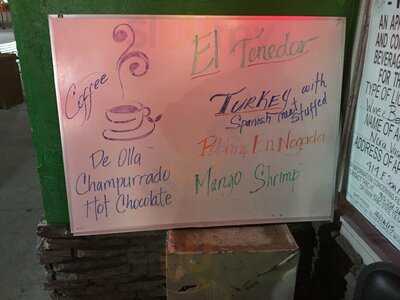 Coffee
De Olla
Champurrado
Hot Chocolate
El Tenedor
TURKEY with
Spanish Stuffed
En Nogada
Mango Shrimp
AN AP
AND CON
BEVERAGE
FOR TH
TYPE OF
NAME OF A
NAME OF
ADDRESS OF A